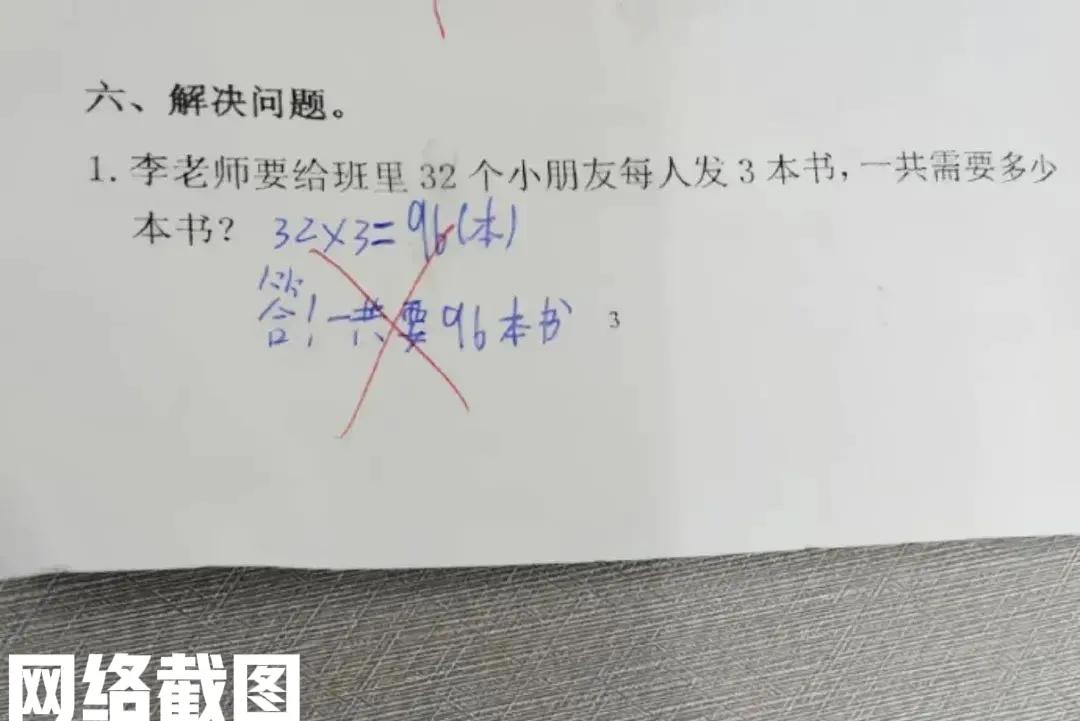 六、解决问题。
1. 李老师要给班里 32 个小朋友每人发 3 本书，一共需要多少
本书？ 32×3=96(本)
答！一共要96本书 3
网络截图